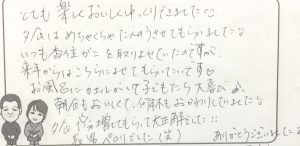 とても楽しくおいしくゆっくりできました♡
夕食は、めちゃくちゃたんのうさせてもらいました♡
いつも香住がにを取りよせていたのですが、
来年からはこちらにさせてもらいたいです♡
お風呂に がいて子どもたち大喜び♪
朝食もおいしくて、何杯もおかわりしていました♡
夕食 増してもらって大正解でした!!
ペロリでした(笑)
ありがとうございました